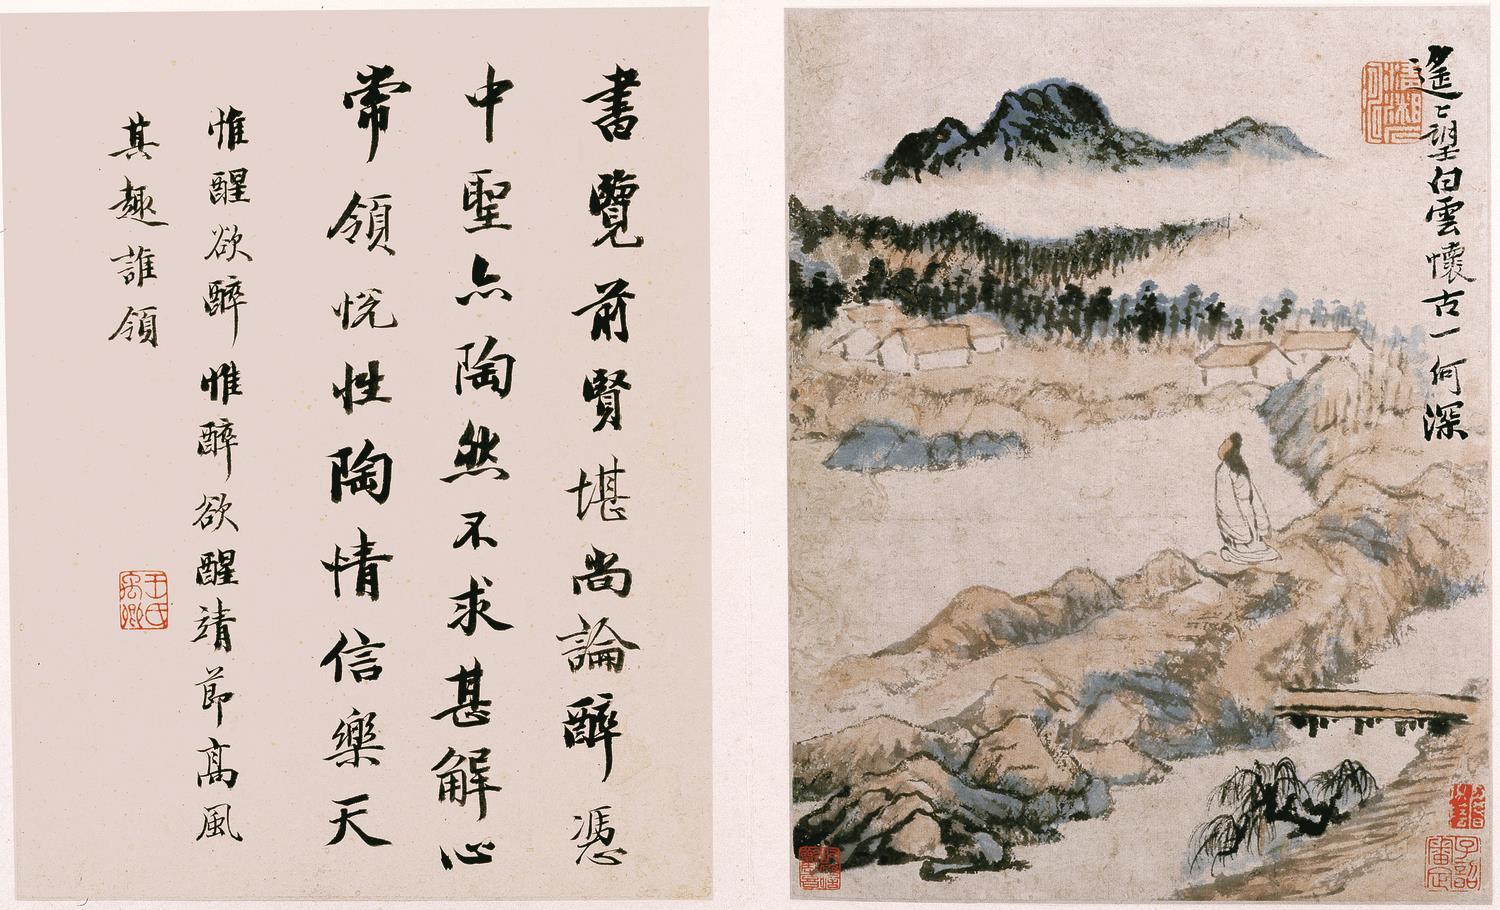 遙〻望白雲懷古一何深
書覽前賢堪尚論醉憑
中聖亦陶然不求甚解心
常領悦性陶情信樂天
惟醒欲醉惟醉欲醒靖節高風
其趣誰領